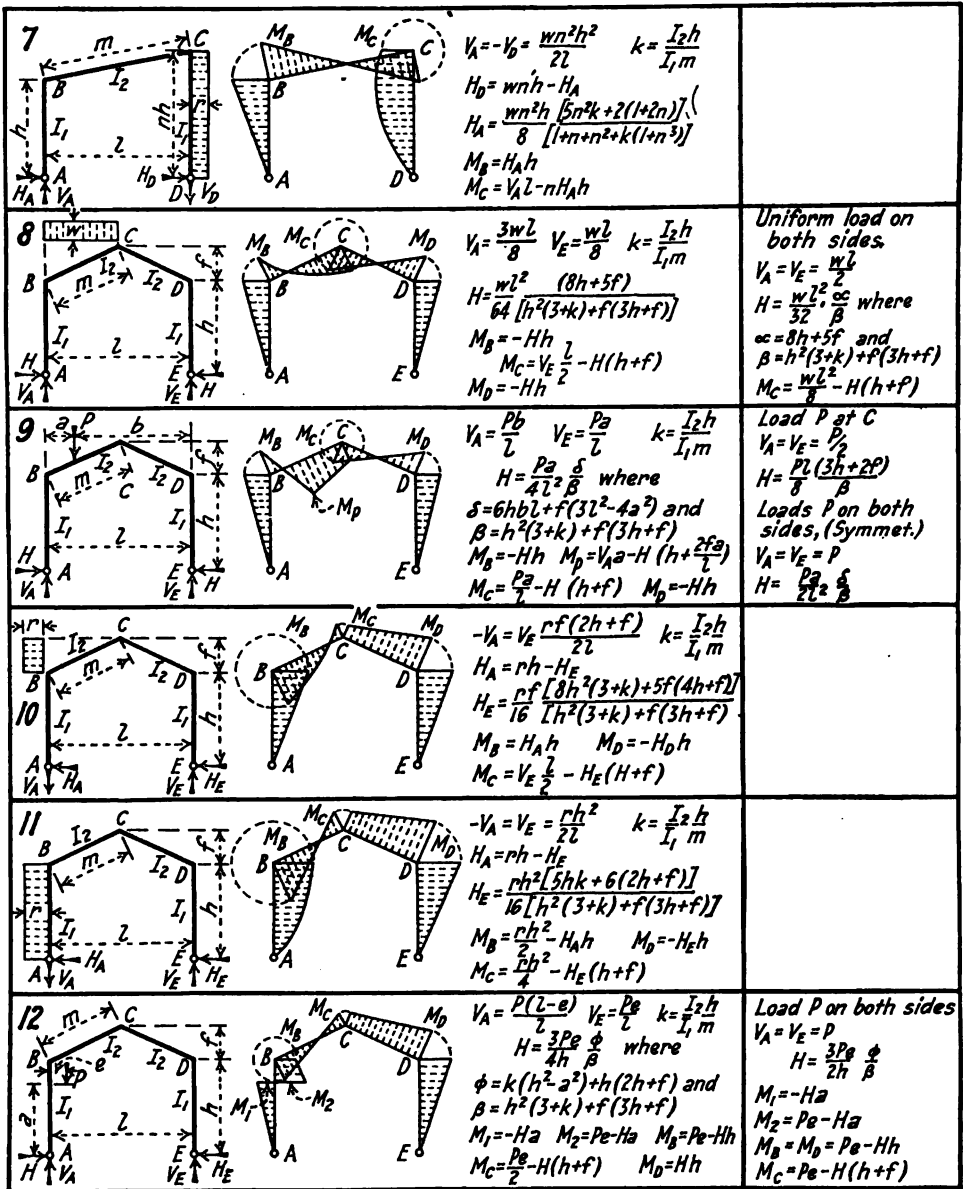 7
m
C
B
I₂
h
nh
r
I₁
I₁
l
A
H_A
V_A
H_D
D
V_D
M_B
M_C
C
B
A
D
V_A=-V_D= wn²h²/2l k= I₂h/I₁m
H_D = wnh-H_A
H_A= wn²h/8 [5n²k+2(1+2n)]/[1+n+n²+k(1+n³)]
M_B=H_Ah
M_C=V_Al-nH_Ah
8
w
C
f
B
m
I₂
I₂
D
I₁
I₁
h
l
H
A
V_A
E
H
V_E
M_B
M_C
C
M_D
B
D
A
E
V_A= 3wl/8 V_E= wl/8 k= I₂h/I₁m
H= wl²/64 (8h+5f)/[h²(3+k)+f(3h+f)]
M_B=-Hh
M_C=V_E l/2 -H(h+f)
M_D=-Hh
Uniform load on
both sides.
V_A=V_E= wl/2
H= wl²/32 · ∝/β where
∝=8h+5f and
β=h²(3+k)+f(3h+f)
M_C= wl²/8 -H(h+f)
9
a
P
b
f
B
I₂
I₂
m
C
D
I₁
I₁
h
l
H
A
V_A
E
H
V_E
M_B
M_C
C
M_D
B
D
M_P
A
E
V_A= Pb/l V_E= Pa/l k= I₂h/I₁m
H= Pa/4l² δ/β where
δ=6hbl+f(3l²-4a²) and
β=h²(3+k)+f(3h+f)
M_B=-Hh M_P=V_Aa-H (h+ 2fa/l)
M_C= Pa/l -H (h+f) M_D=-Hh
Load P at C
V_A=V_E= P/2
H= Pl/8 (3h+2f)/β
Loads P on both
sides, (Symmet.)
V_A=V_E=P
H= Pa/2l² δ/β
10
r
C
I₂
f
B
m
I₂
D
10
I₁
I₁
h
l
A
V_A
H_A
E
V_E
H_E
M_B
M_C
M_D
B
C
D
A
E
-V_A=V_E rf(2h+f)/2l k= I₂h/I₁m
H_A=rh-H_E
H_E= rf/16 [8h²(3+k)+5f(4h+f)]/[h²(3+k)+f(3h+f)
M_B=H_Ah M_D=-H_Dh
M_C=V_E l/2 -H_E(H+f)
11
C
I₂
f
B
m
I₂
D
r
I₁
I₁
h
l
A
V_A
H_A
E
V_E
H_E
M_B
M_C
M_D
B
C
D
A
E
-V_A=V_E= rh²/2l k= I₂h/I₁m
H_A=rh-H_E
H_E= rh²[5hk+6(2h+f)]/16[h²(3+k)+f(3h+f)]
M_B= rh²/2 -H_Ah M_D=-H_Eh
M_C= rh²/4 -H_E(h+f)
12
m
C
f
B
e
I₂
I₂
D
P
a
I₁
I₁
h
l
H
A
V_A
E
V_E
H_E
M_B
M_C
M_D
B
C
D
M₁
M₂
A
E
V_A= P(l-e)/l V_E= Pe/l k= I₂h/I₁m
H= 3Pe/4h ϕ/β where
ϕ=k(h²-a²)+h(2h+f) and
β=h²(3+k)+f(3h+f)
M₁=-Ha M₂=Pe-Ha M_B=Pe-Hh
M_C= Pe/2 -H(h+f) M_D=Hh
Load P on both sides
V_A=V_E=P
H= 3Pe/2h ϕ/β
M₁=-Ha
M₂=Pe-Ha
M_B=M_D=Pe-Hh
M_C=Pe-H(h+f)